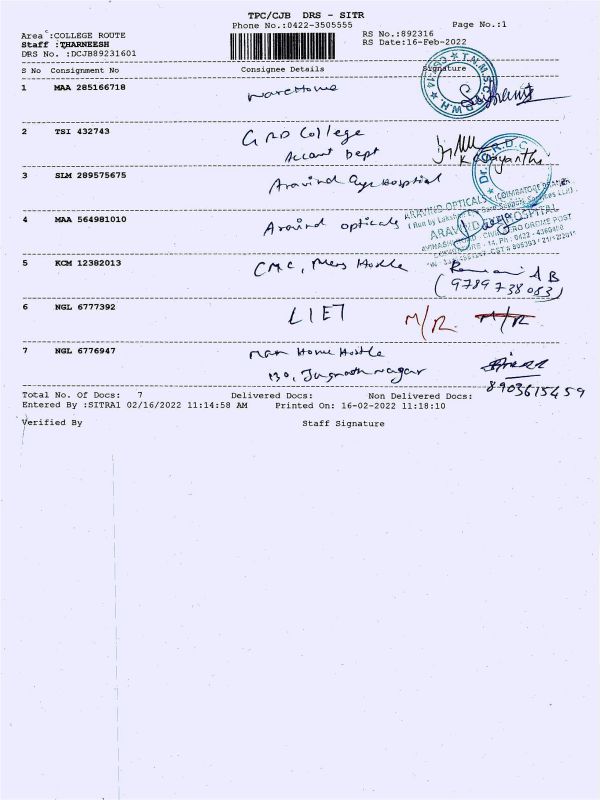 TPC/CJB DRS - SITR
Phone No.:0422-3505555 Page No.:1
Area :COLLEGE ROUTE RS No.:892316
Staff :THARNEESH RS Date:16-Feb-2022
DRS No. :DCJB89231601
S No Consignment No Consignee Details Signature
1 MAA 285166718 warehouse
2 TSI 432743 GRD College
Accant Dept
3 SLM 289575675 Aravind eye Hospital
4 MAA 564981010 Aravind opticals
ARAVIND OPTICALS (COIMBATORE
ARAVIND HOSPITAL
5 KCM 12382013 CMC, Mens Hostle
(9789738053)
6 NGL 6777392 LIET M/R. M/R
7 NGL 6776947 Man Home Hostle
130, Jagnath nagar
8903615459
Total No. Of Docs: 7 Delivered Docs: Non Delivered Docs:
Entered By :SITRA1 02/16/2022 11:14:58 AM Printed On: 16-02-2022 11:18:10
Verified By Staff Signature